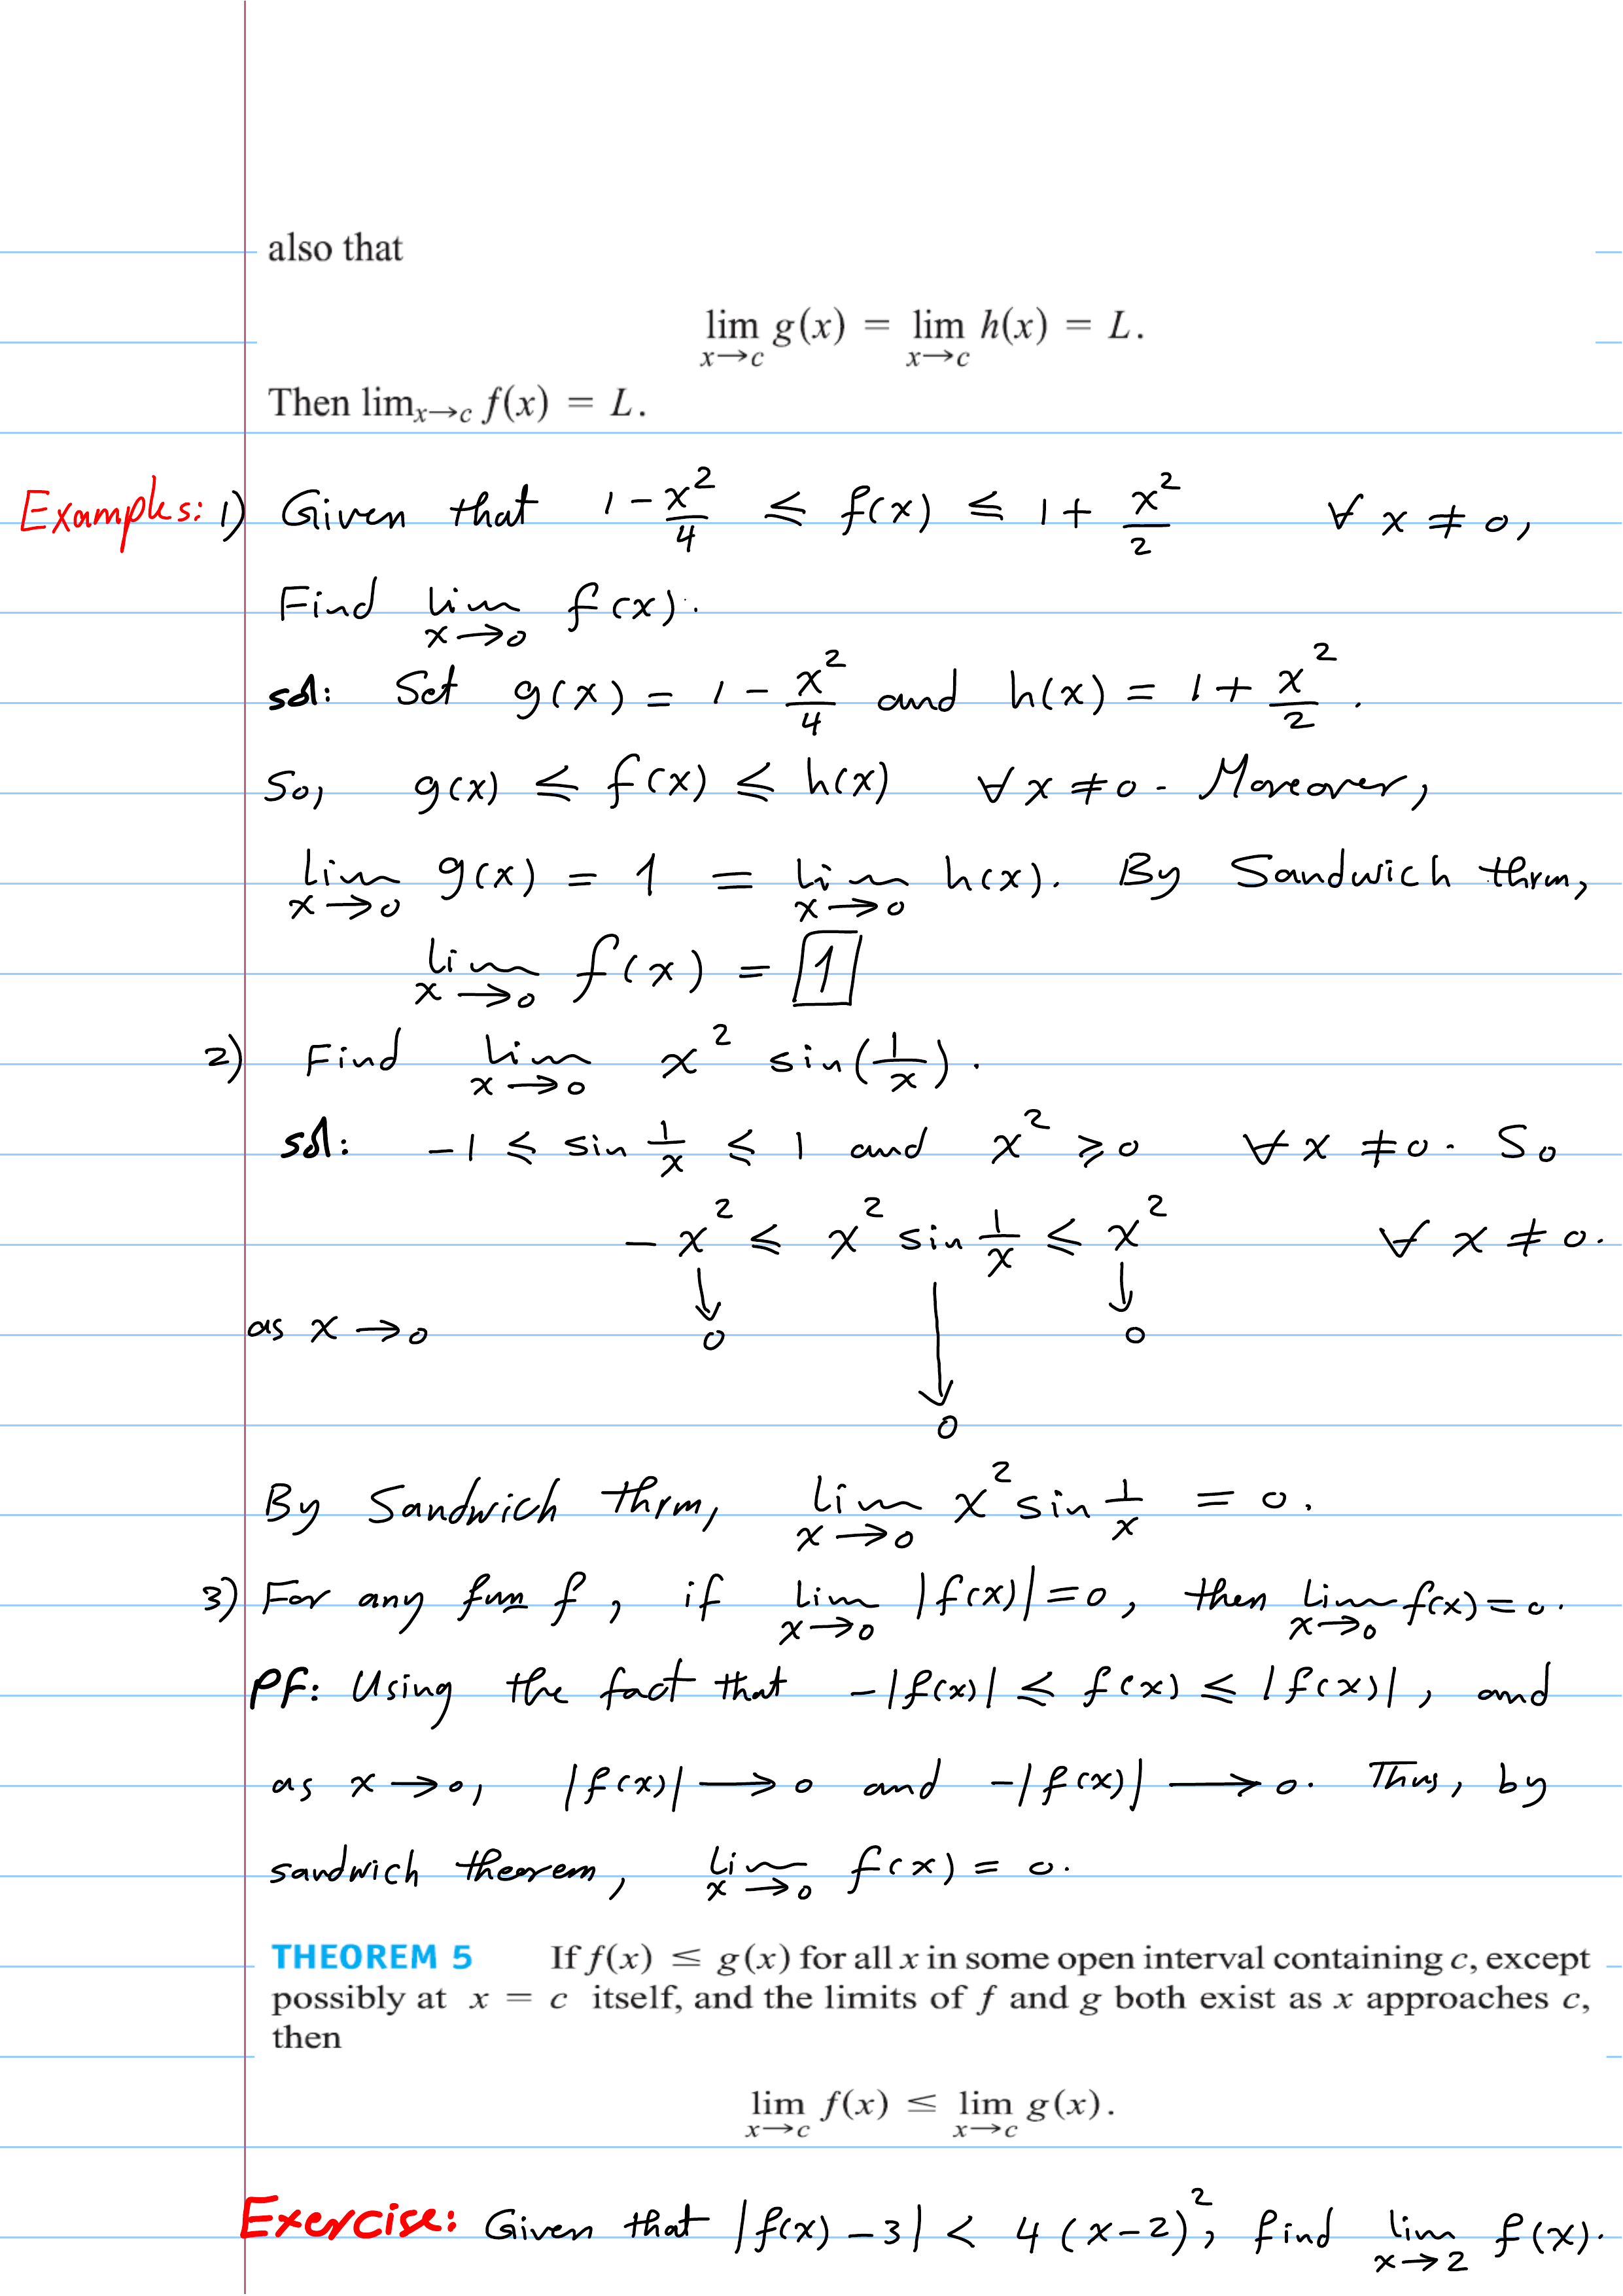 also that
lim x→c g(x) = lim x→c h(x) = L.
Then limx→c f(x) = L.
Examples: 1) Given that 1 - x²/4 ≤ f(x) ≤ 1 + x²/2 ∀ x ≠ 0,
Find lim x→0 f(x).
sol: Set g(x) = 1 - x²/4 and h(x) = 1 + x²/2.
So, g(x) ≤ f(x) ≤ h(x) ∀ x ≠ 0. Moreover,
lim x→0 g(x) = 1 = lim x→0 h(x). By Sandwich thrm,
lim x→0 f(x) = 1
2) Find lim x→0 x² sin(1/x).
sol: -1 ≤ sin 1/x ≤ 1 and x² ≥ 0 ∀ x ≠ 0. So
- x² ≤ x² sin 1/x ≤ x² ∀ x ≠ 0.
↓ ↓ ↓
as x → 0 0 0
0
By Sandwich thrm, lim x→0 x² sin 1/x = 0.
3) For any fun f, if lim x→0 |f(x)| = 0, then lim x→0 f(x) = 0.
PF: Using the fact that -|f(x)| ≤ f(x) ≤ |f(x)|, and
as x → 0, |f(x)| → 0 and -|f(x)| → 0. Thus, by
sandwich theorem, lim x→0 f(x) = 0.
THEOREM 5 If f(x) ≤ g(x) for all x in some open interval containing c, except
possibly at x = c itself, and the limits of f and g both exist as x approaches c,
then
lim x→c f(x) ≤ lim x→c g(x).
Exercise: Given that |f(x) - 3| < 4 (x-2)², find lim x→2 f(x).